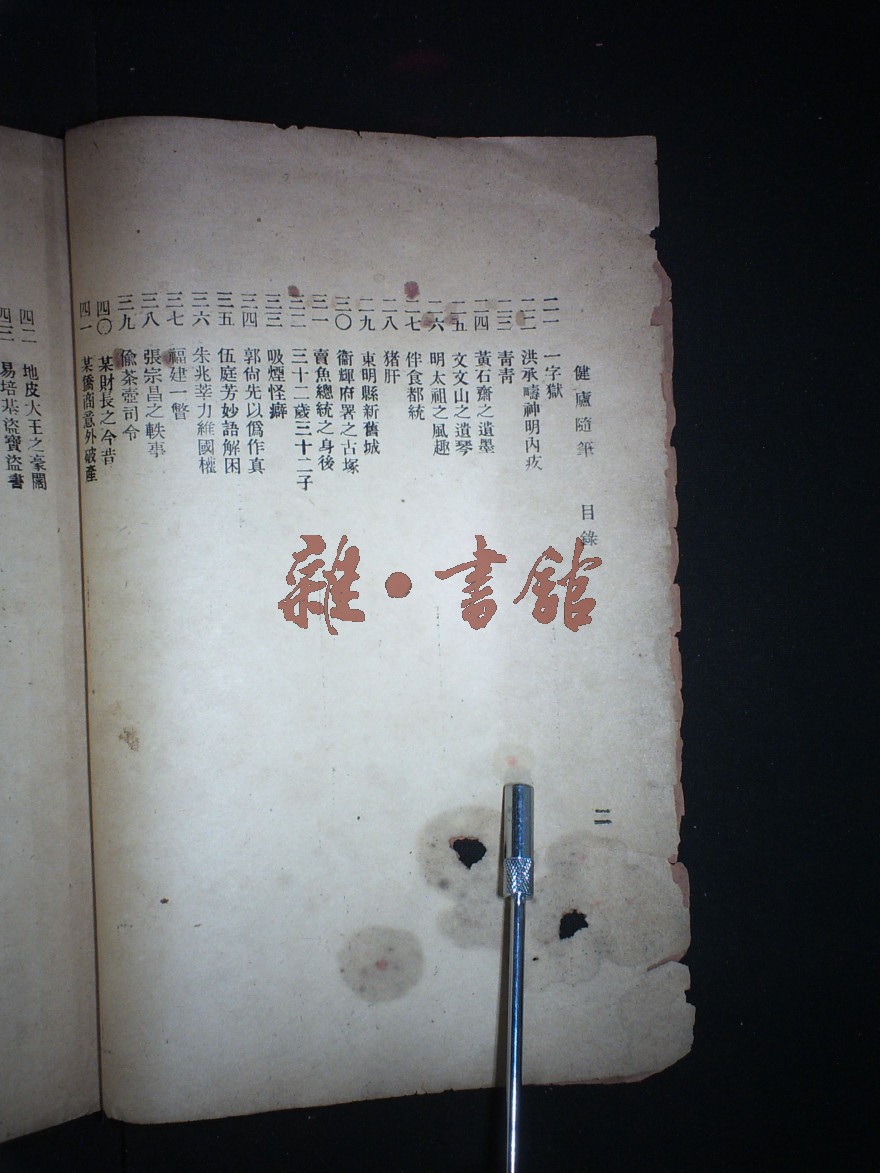 健廬隨筆 目錄
二
二一 一字獄
二二 洪承疇神明內疚
二三 青青
二四 黃石齋之遺墨
二五 文文山之遺琴
二六 明太祖之風趣
二七 伴食都統
二八 猪肝
二九 東明縣新舊城
三〇 衞輝府署之古塚
三一 賣魚總統之身後
三二 三十二歲三十二子
三三 吸煙怪癖
三四 郭尙先以僞作真
三五 伍庭芳妙語解困
三六 朱兆莘力維國權
三七 福建一瞥
三八 張宗昌之軼事
三九 偸茶壺司令
四〇 某財長之今昔
四一 某僑商意外破產
四二 地皮大王之豪闊
四三 易培基盜寶盜書
雜·書館